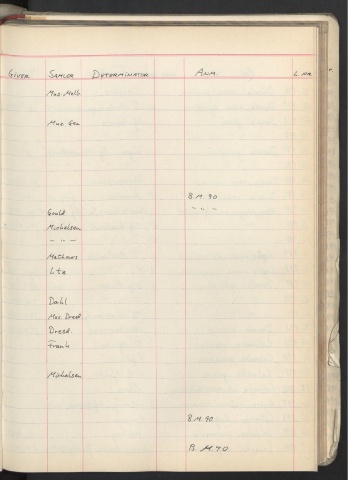 GIVER SAMLER DETERMINATOR ANM. L. NR.
Mus. Melb.
Mus. Gen.
B. M. 90
Gould - " -
Michelsen
- " -
Mathews
Dahl
Mus. Dresd.
Dresd.
Frank
Michelsen
B. M. 90
B. M. 90